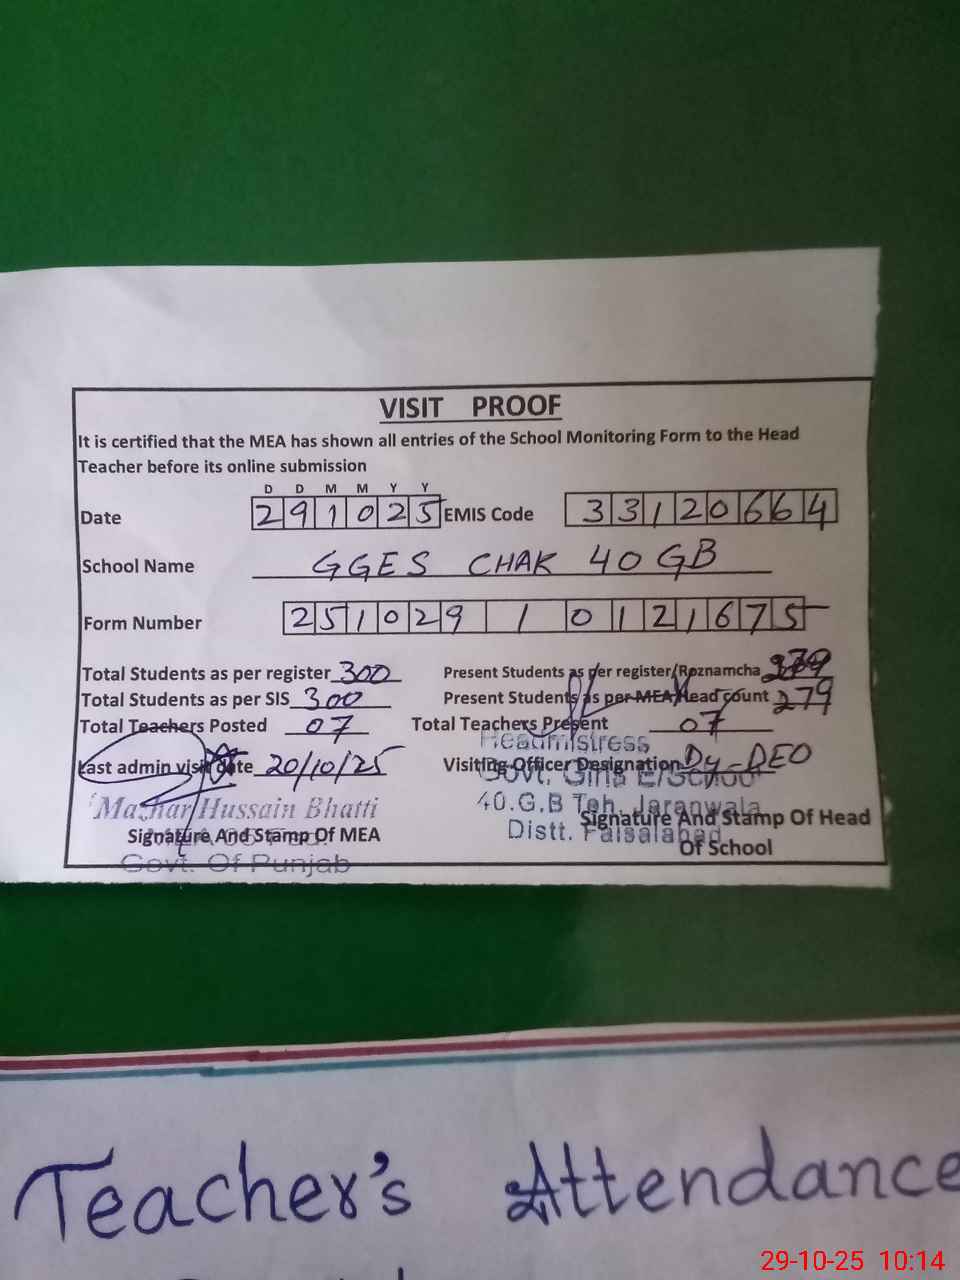 VISIT PROOF
It is certified that the MEA has shown all entries of the School Monitoring Form to the Head
Teacher before its online submission
D D M M Y Y
Date 291025 EMIS Code 33120664
School Name GGES CHAK 40 GB
Form Number 251029 1 0121675
Total Students as per register 300 Present Students as per register/Roznamcha 279
Total Students as per SIS 300 Present Students as per MEA Head count 279
Total Teachers Posted 07 Total Teachers Present 07
Headmistress
Last admin visit date 20/10/25 Visiting Officer Designation Dy-DEO
Govt. Girls E/School
Mazhar Hussain Bhatti 40.G.B Teh. Jaranwala
Signature And Stamp Of MEA Distt. Faisalabad Signature And Stamp Of Head
Of School
Govt. Of Punjab
Teacher's Attendance
29-10-25 10:14